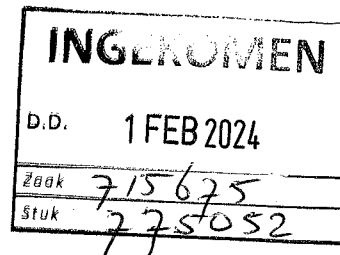 INGEKOMEN
D.D. 1 FEB 2024
Zaak 715675
Stuk 775052